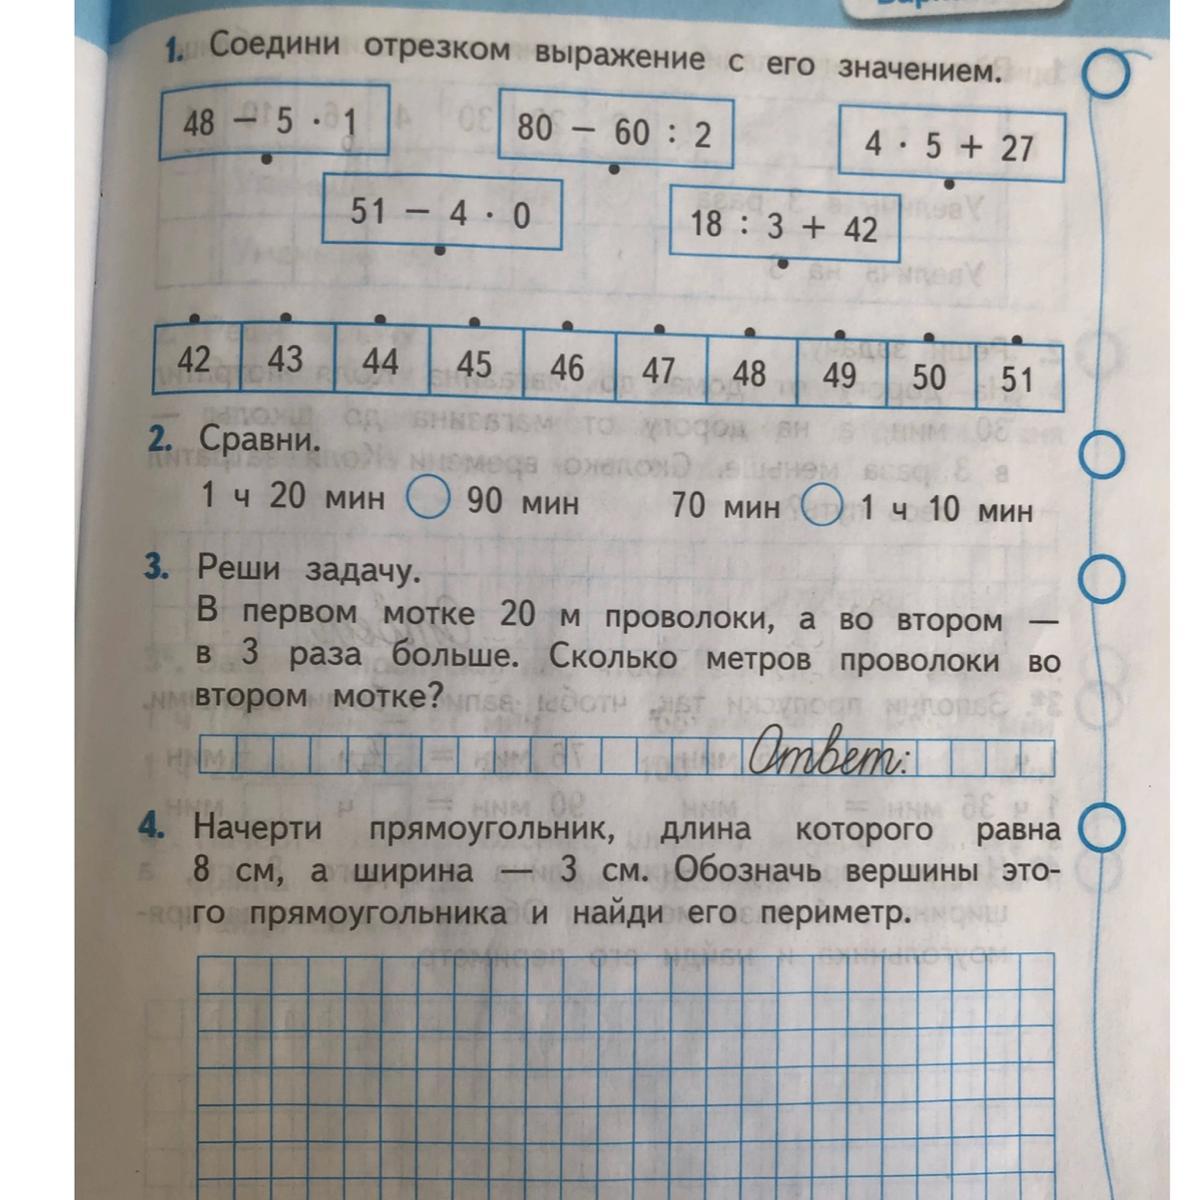 1. Соедини отрезком выражение с его значением.
48 − 5 · 1
80 − 60 : 2
4 · 5 + 27
51 − 4 · 0
18 : 3 + 42
42 43 44 45 46 47 48 49 50 51
2. Сравни.
1 ч 20 мин 90 мин 70 мин 1 ч 10 мин
3. Реши задачу.
В первом мотке 20 м проволоки, а во втором —
в 3 раза больше. Сколько метров проволоки во
втором мотке?
Ответ:
4. Начерти прямоугольник, длина которого равна
8 см, а ширина — 3 см. Обозначь вершины это-
го прямоугольника и найди его периметр.